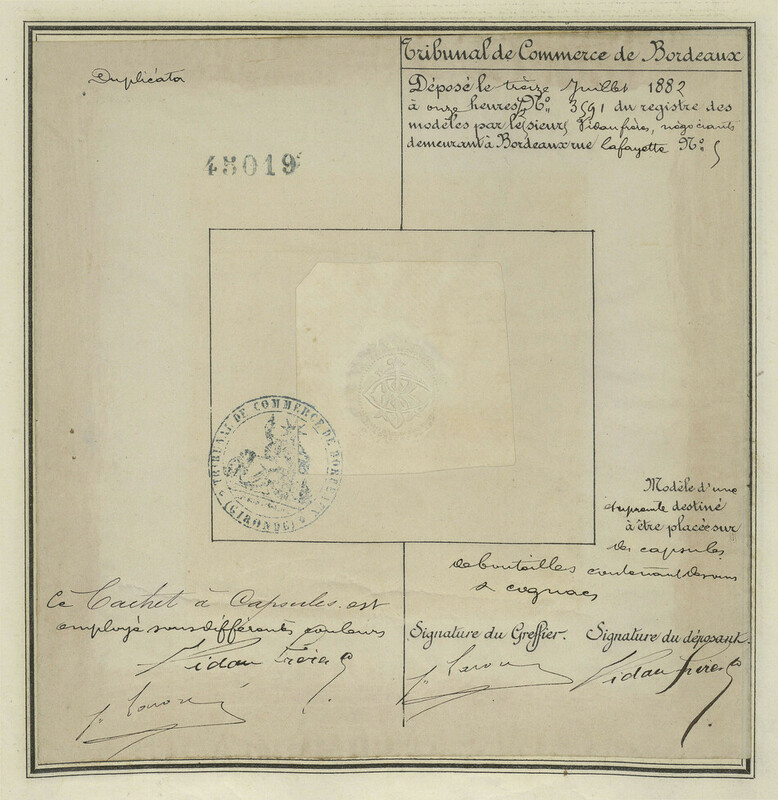 Duplicata
45019
Tribunal de Commerce de Bordeaux
Déposé le treize Juillet 1882
à onze heures N° 3591 du registre des
modèles par le sieurs Vidau frères, négociants
demeurant à Bordeaux rue lafayette N° 5
TRIBUNAL DE COMMERCE DE BORDEAUX
(GIRONDE)
Modèle d'une
empreinte destiné
à être placée sur
des capsules
de bouteilles contenant des vins
& cognacs
Ce Cachet à Capsules est
employé sous différents couleurs
Vidau Frères
Signature du Greffier. Signature du déposant.
Vidau Frères